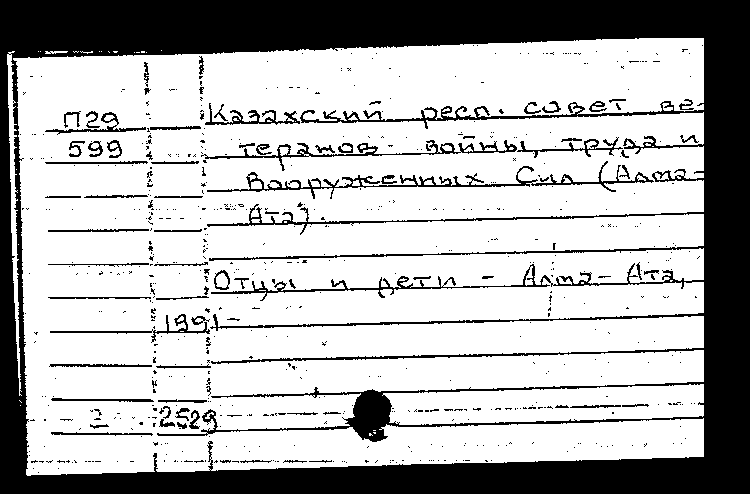 П29 Казахский респ. совет ве-
599 теранов войны, труда и
Вооруженных Сил (Алма-
Ата).
Отцы и дети - Алма-Ата,
1991-
2529